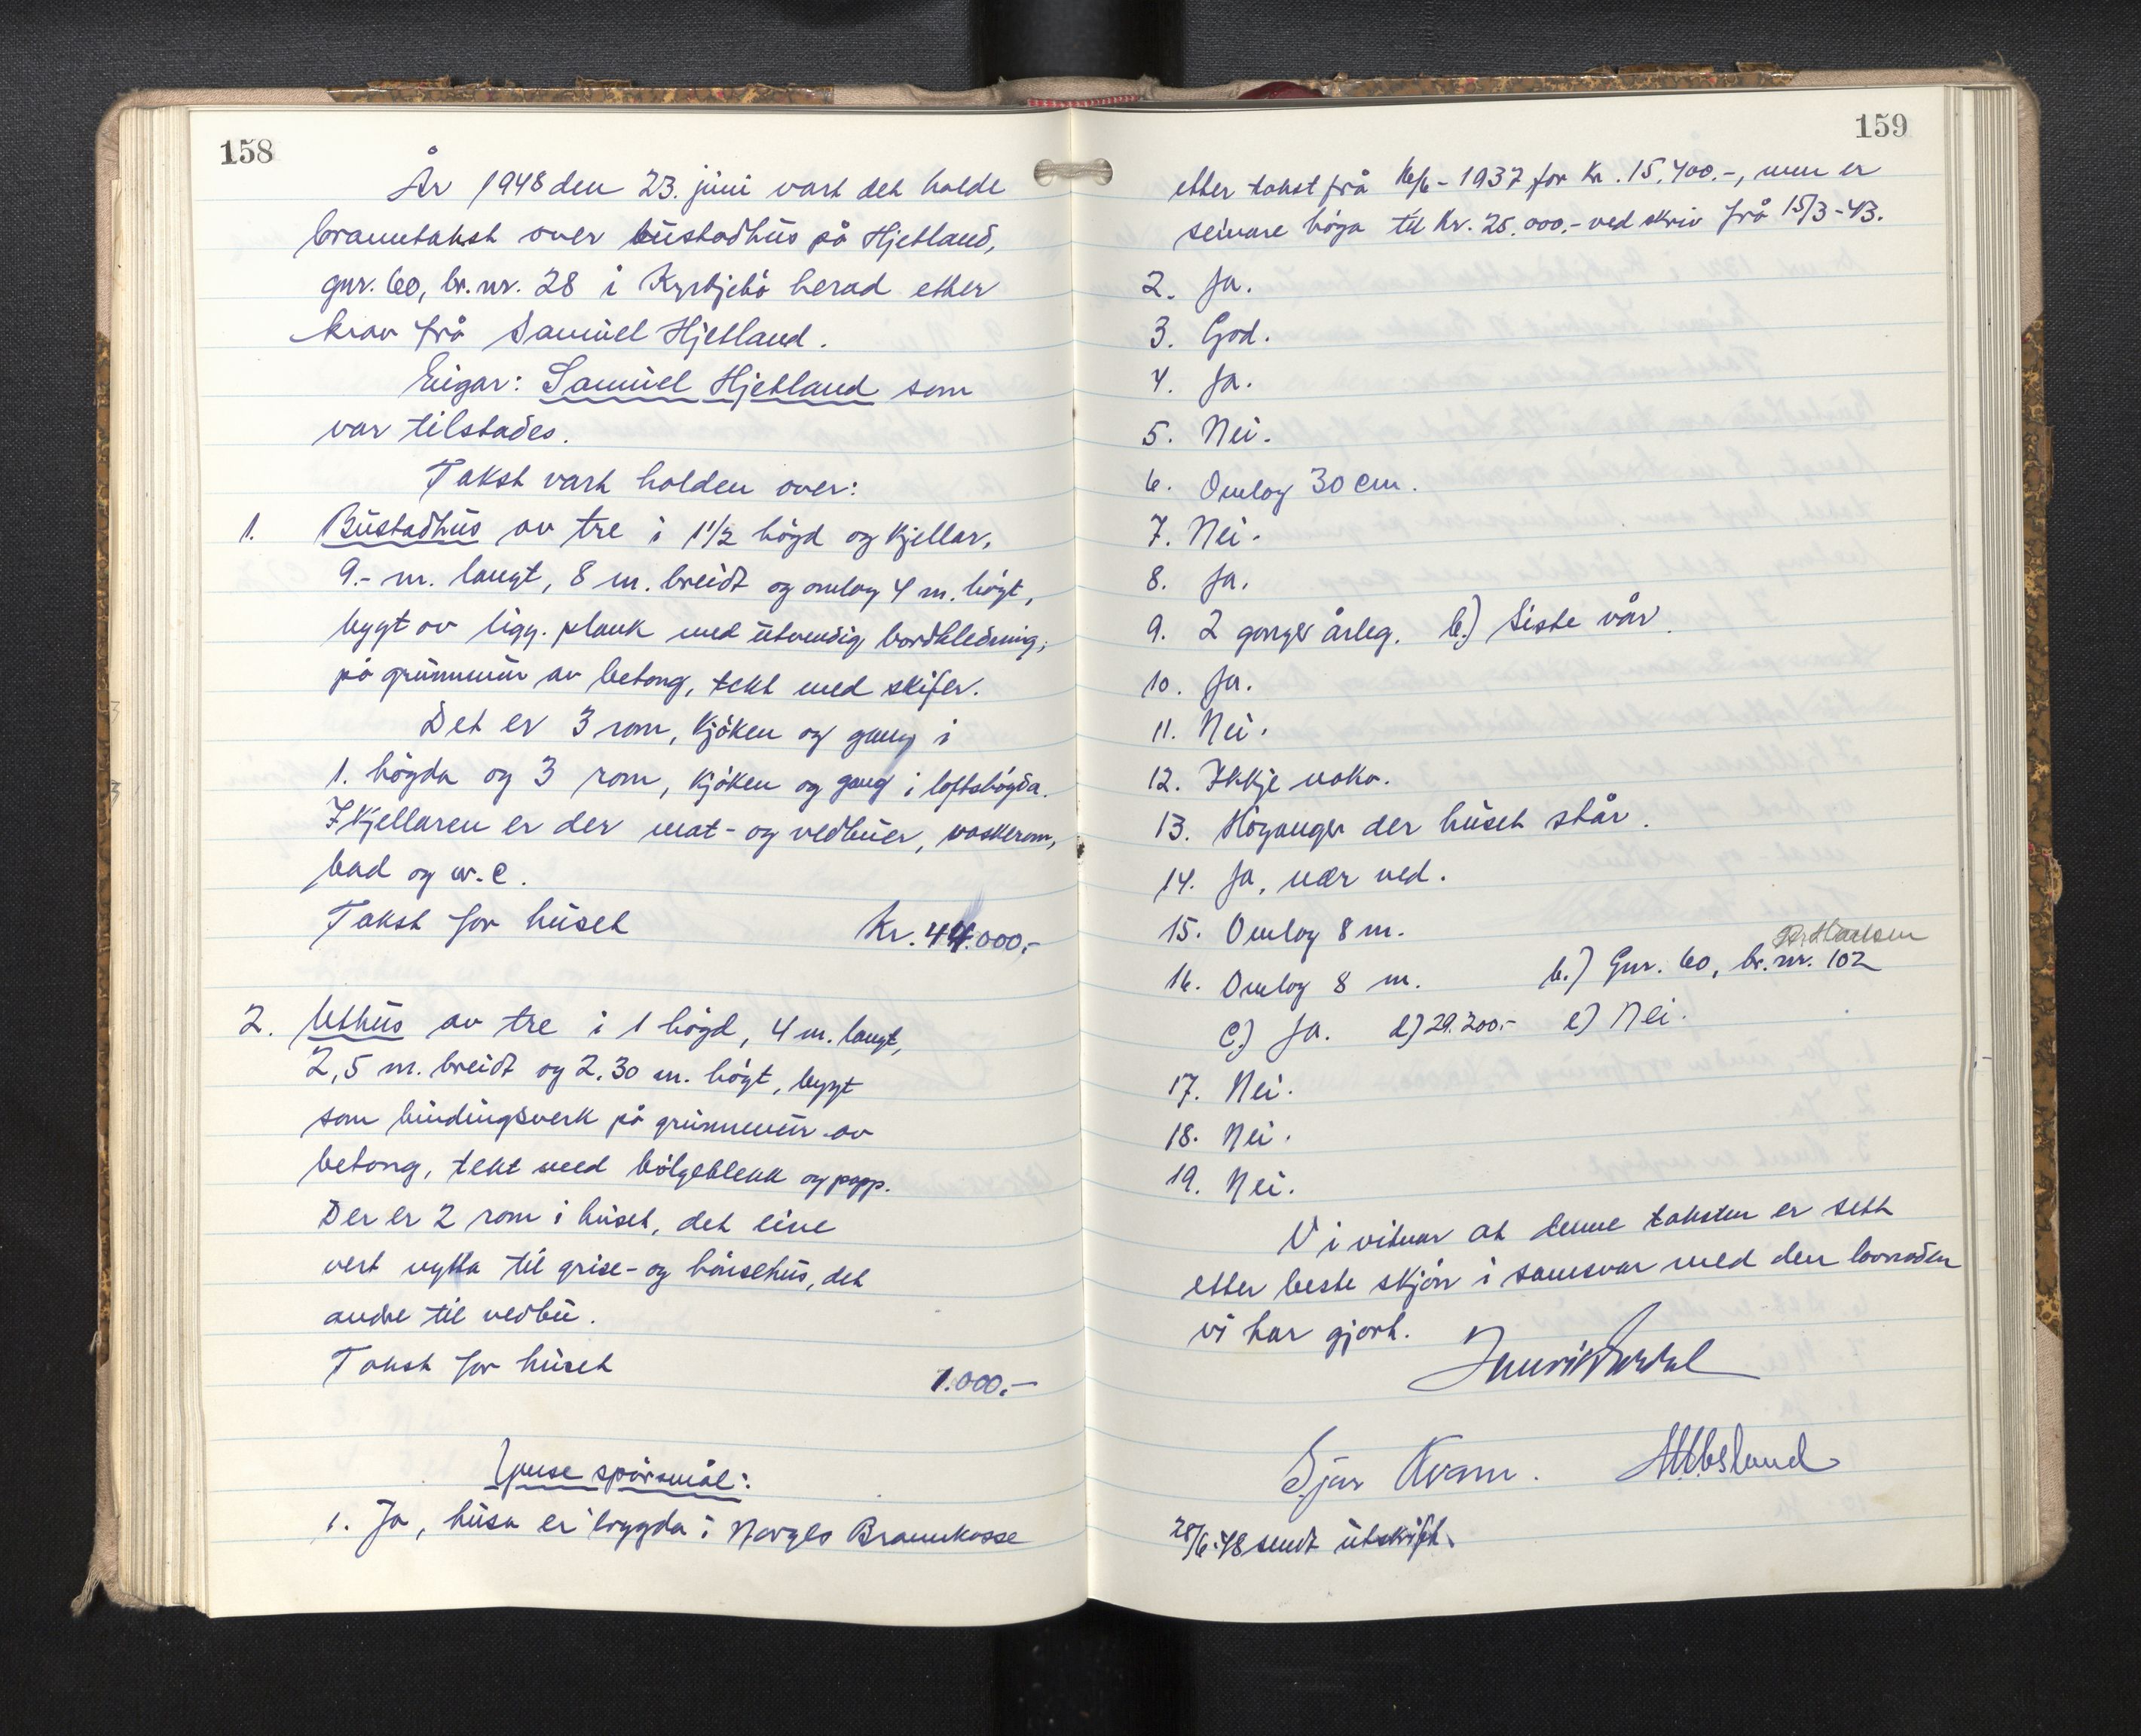 158
År 1948 den 23. juni vart det halde
branntakst over bustadhus på Hjetland,
gnr. 60, br.nr. 28 i Kyrkjebö herad etter
krav frå Samuel Hjetland.
Eigar: Samuel Hjetland som
var tilstades.
Takst vart halden over:
1. Bustadhus av tre i 1 1/2 högd og kjellar,
9.- m. langt, 8 m. breidt og omlag 4 m. högt,
bygt av ligg. plank med utvendig bordkledning,
på grunnmur av betong, tekt med skifer.
Det er 3 rom, kjöken og gang i
1. högda og 3 rom, kjöken og gang i loftshögda.
I kjellaren er der mat- og vedbuer, vaskerom,
bad og w.c.
Takst for huset Kr. 44.000,-
2. Uthus av tre i 1 högd, 4 m. langt,
2,5 m. breidt og 2,30 m. högt, bygt
som bindingsverk på grunnmur av
betong, tekt med bölgeblekk og papp.
Der er 2 rom i huset, det eine
vert nytta til grise- og hönsehus, det
andre til vedbu.
Takst for huset 1.000,-
Ymse spörsmål:
1. Ja, husa er trygda i Norges Brannkasse
159
etter takst frå 16/6-1937 for kr. 15.400.-, men er
seinare höga til Kr. 25.000,- ved skriv frå 15/3-43.
2. Ja.
3. God.
4. Ja.
5. Nei.
6. Omlag 30 cm.
7. Nei.
8. Ja.
9. 2 gonger årleg. b.) Siste vår.
10. Ja.
11. Nei.
12. Ikkje noko.
13. Höyanger der huset står.
14. Ja, nær ved.
15. Omlag 8 m.
16. Omlag 8 m. b.) Gnr. 60, br.nr. 102
c.) Ja. d) 29.200.- e) Nei.
17. Nei.
18. Nei.
19. Nei.
Vi vitnar at denne taksten er sett
etter beste skjön i samsvar med den lovnaden
vi har gjort.
Kvam.
28/6-48 sendt utskrift.